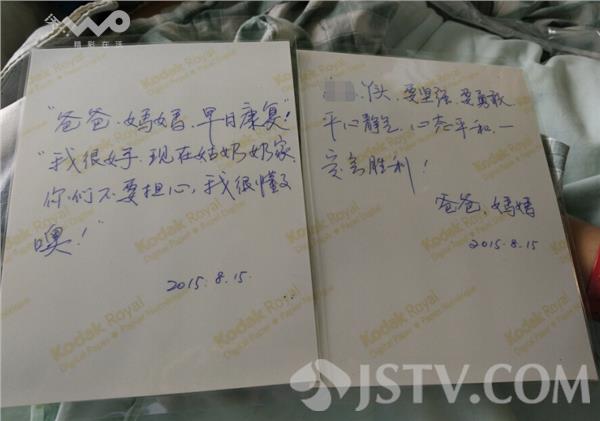 荔影在活
"爸爸、妈妈、早日康复!"
"我很好、现在姑奶奶家、
你们不要担心、我很懂又
噢!"
2015.8.15.
丫头、要坚强、要勇敢、
平心静气、心态平和、一
定会胜利!
爸爸、妈妈
2015.8.15
Kodak Royal
Digital Paper
JSTV.COM